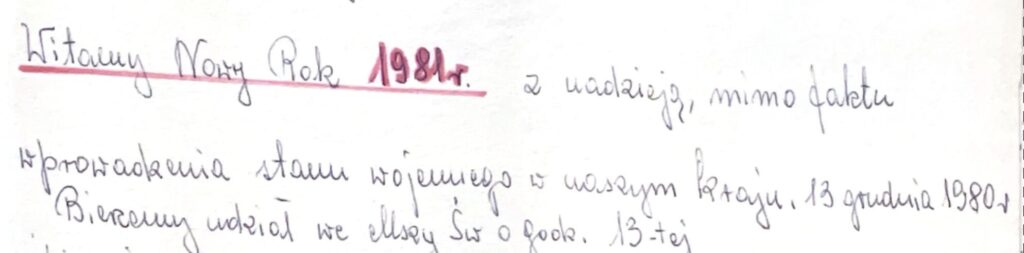 Witamy Nowy Rok 1981r. z nadzieją, mimo faktu
wprowadzenia stanu wojennego w naszym kraju. 13 grudnia 1980r
Bierzemy udział we Mszy Św o godz. 13-tej